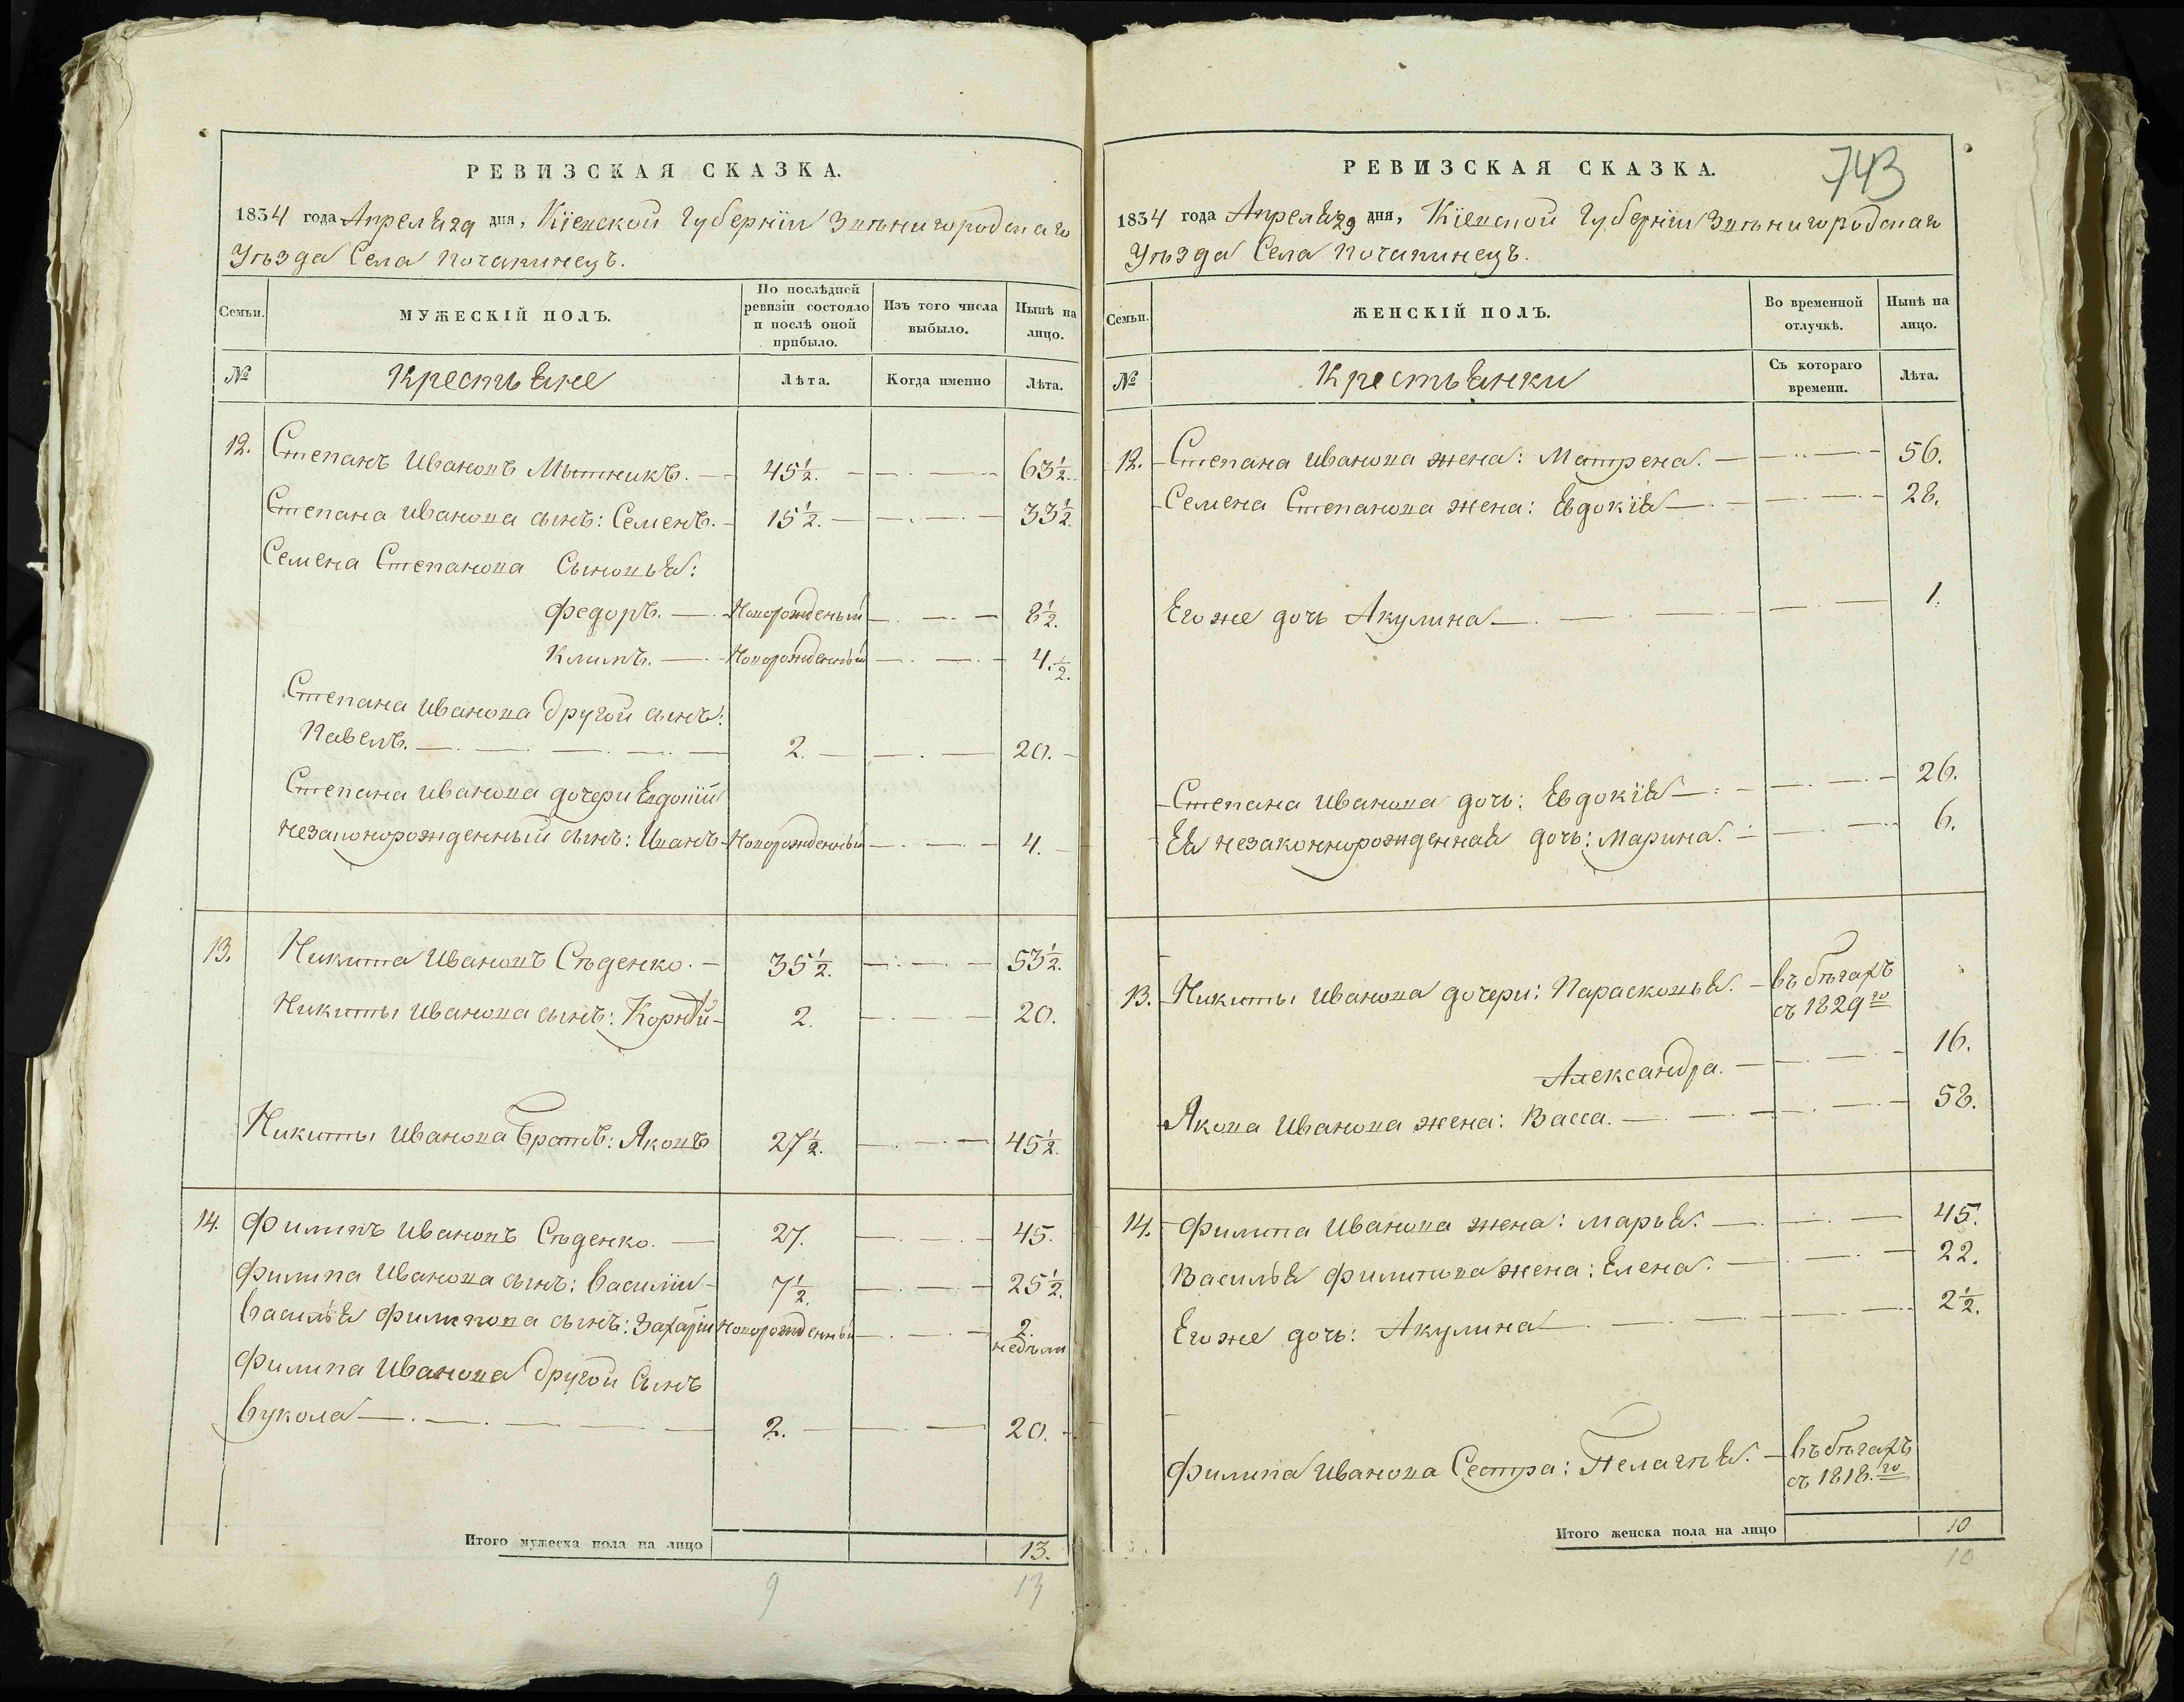 РЕВИЗСКАЯ СКАЗКА.
1834 года Апреля 29 дня, Кіевской Губерніи Звѣнигородскаго
Уѣзда Села Почапинецъ.
Семьи. МУЖЕСКІЙ ПОЛЪ. По послѣдней ревизіи состояло и послѣ оной прибыло. Изъ того числа выбыло. Нынѣ на лицо.
№ Крестьяне Лѣта. Когда именно Лѣта.
12. Степанъ Ивановъ Мытникъ. 45½. 63½.
Степана Иванова сынъ: Семенъ. 15½. 33½.
Семена Степанова Сыновья:
Федоръ. Новорожденый 8½.
Климъ. Новорожденный 4.½.
Степана Иванова другой сынъ:
Павелъ. 2. 20.
Степана Иванова дочери Евдокіи
незаконорожденный сынъ: Иванъ Новорожденный 4.
13. Никита Ивановъ Сѣденко. 35½. 53½.
Никиты Иванова сынъ: Корнѣй 2. 20.
Никиты Иванова Братъ: Яковъ 27½. 45½.
14. Филипъ Ивановъ Сѣденко. 27. 45.
Филипа Иванова сынъ: Василій 7½. 25½.
Василья Филипова сынъ: Захарій Новорожденный 2. недѣли
Филипа Иванова другой Сынъ
Вукола 2. 20.
Итого мужеска пола на лицо 13.
9 13
РЕВИЗСКАЯ СКАЗКА. 743
1834 года Апреля 29 дня, Кіевской Губерніи Звѣнигородскаго
Уѣзда Села Почапинецъ.
Семьи. ЖЕНСКІЙ ПОЛЪ. Во временной отлучкѣ. Нынѣ на лицо.
№ Крестьянки Съ котораго времени. Лѣта.
12. Степана Иванова жена: Матрена. 56.
Семена Степанова жена: Евдокія 28.
Его же дочь Акулина 1.
Степана Иванова дочь: Евдокія 26.
Ея незаконнорожденная дочь: Марина. 6.
13. Никиты Иванова дочери: Парасковья. въ бѣгахъ
съ 1829го
Александра. 16.
Якова Иванова жена: Васса. 58.
14. Филипа Иванова жена: Марья. 45.
Василья Филипова жена: Елена. 22.
Его же дочь: Акулина 2½.
Филипа Иванова Сестра: Пелагѣя. въ бѣгахъ
съ 1818.го
Итого женска пола на лицо 10
10